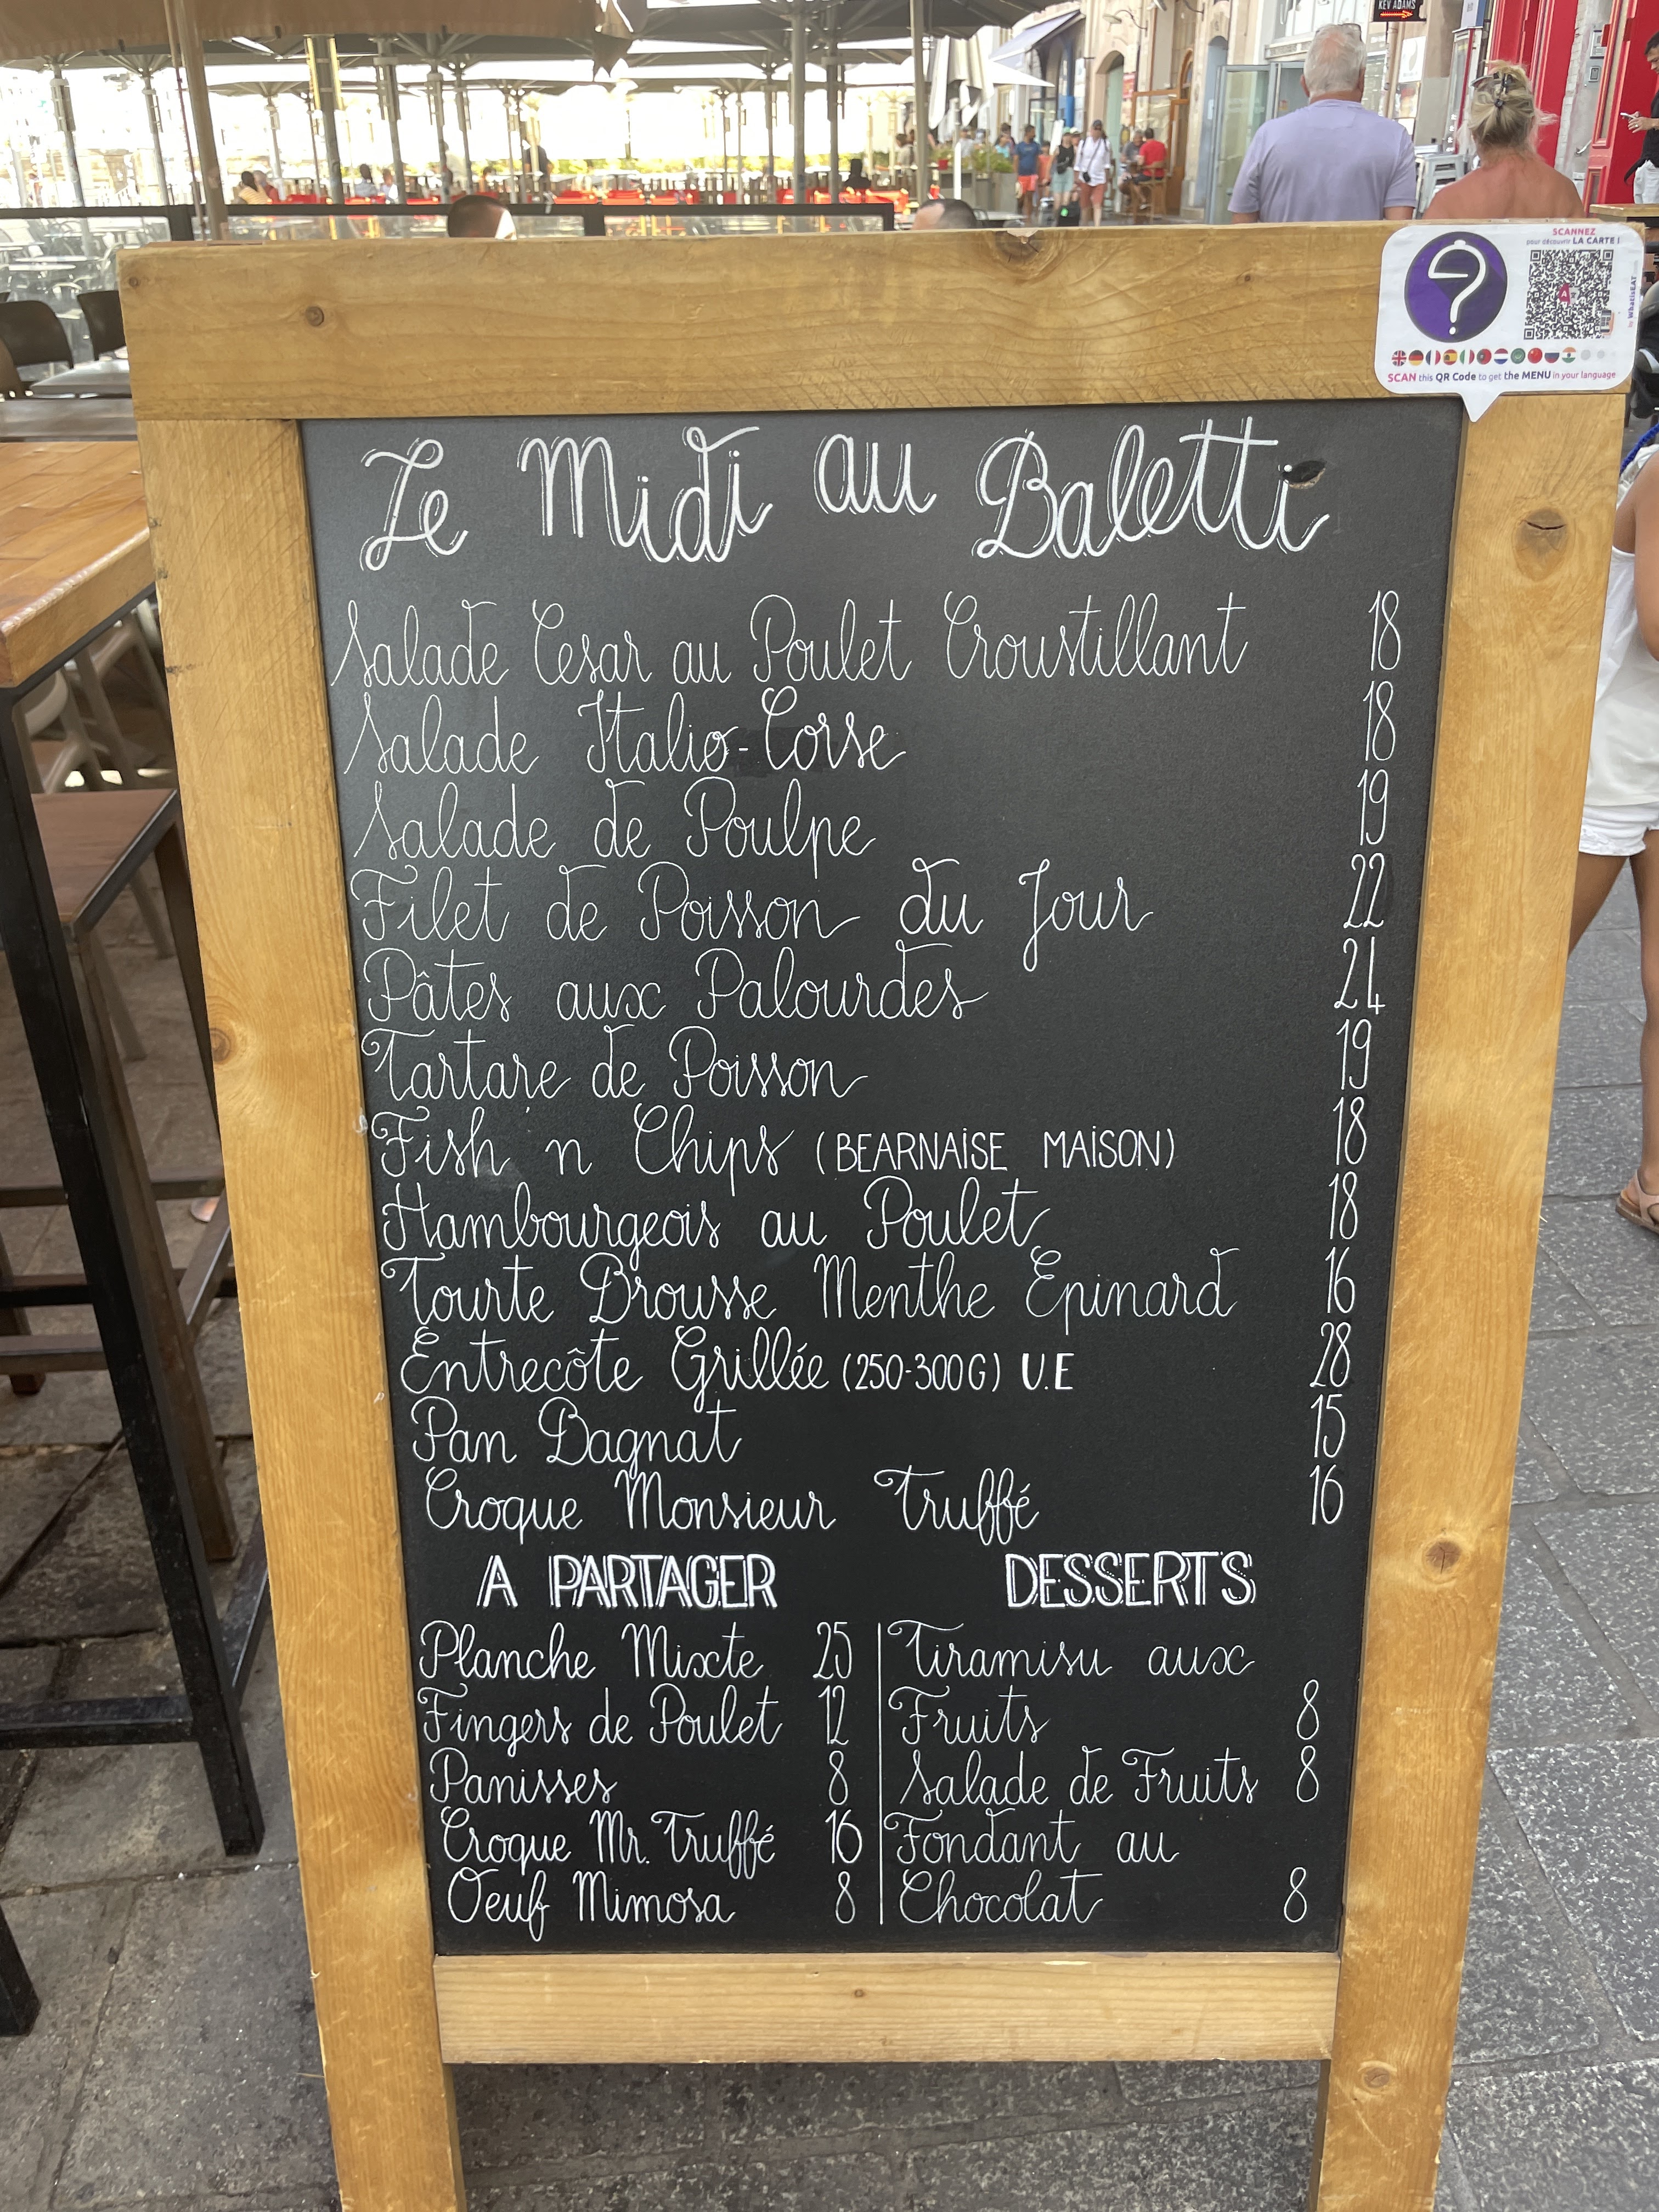 KEV ADAMS
SCANNEZ
pour découvrir LA CARTE !
by WhatisEAT
SCAN this QR Code to get the MENU in your language
Le Midi au Baletti
Salade Cesar au Poulet Croustillant 18
Salade Italio-Corse 18
Salade de Poulpe 19
Filet de Poisson du Jour 22
Pâtes aux Palourdes 24
Tartare de Poisson 19
Fish n Chips (BEARNAISE MAISON) 18
Hambourgeois au Poulet 18
Tourte Brousse Menthe Epinard 16
Entrecôte Grillée (250-300G) U.E 28
Pan Bagnat 15
Croque Monsieur Truffé 16
A PARTAGER
Planche Mixte 25
Fingers de Poulet 12
Panisses 8
Croque Mr. Truffé 16
Oeuf Mimosa 8
DESSERTS
Tiramisu aux
Fruits 8
Salade de Fruits 8
Fondant au
Chocolat 8